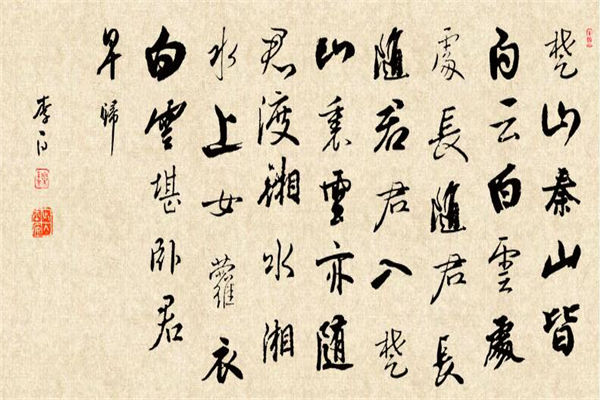 楚山秦山皆
白云白雲處
處長隨君長
隨君君入楚
山裏雲亦隨
君渡湘水湘
水上女蘿衣
白雲堪卧君
早歸
李白